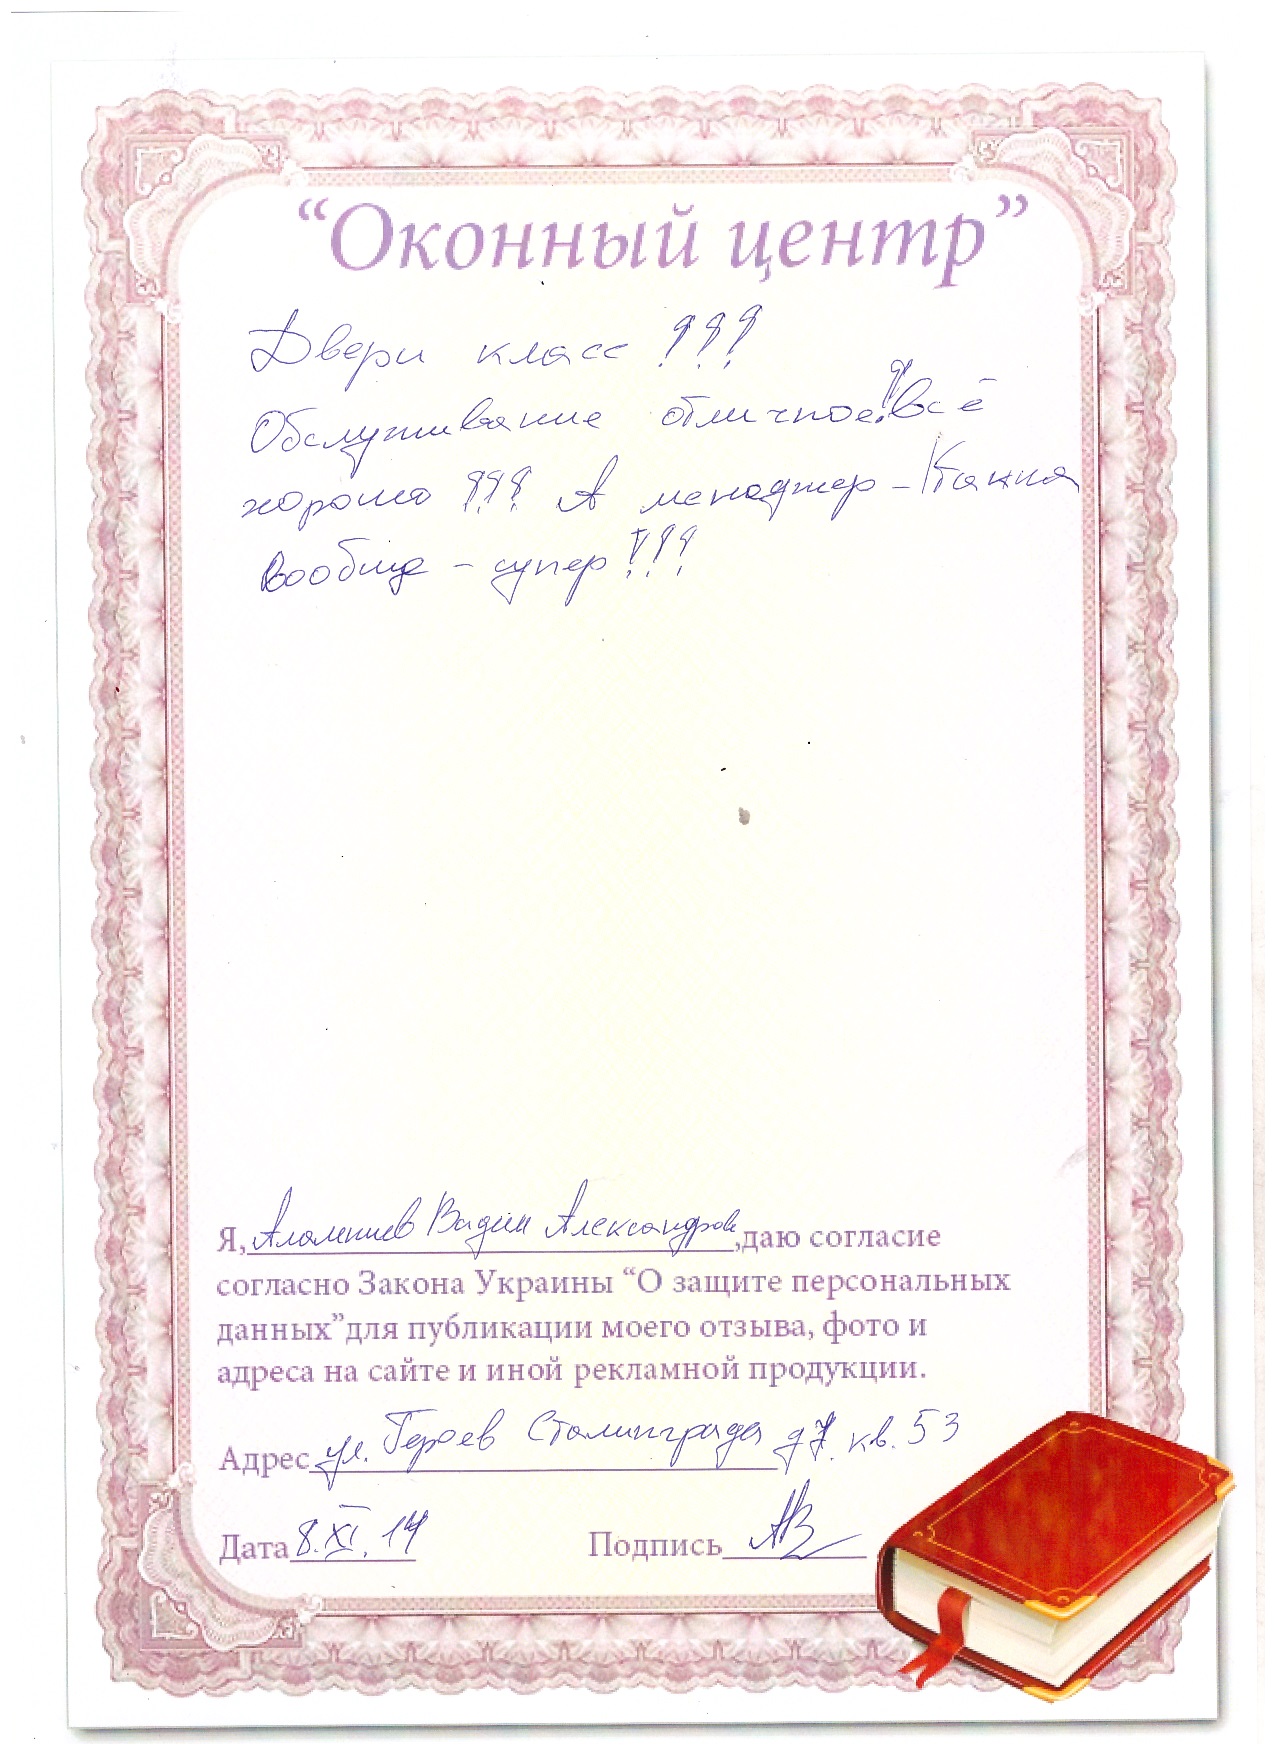 “Оконный центр”
Двери класс !!!
Обслуживание отличное! Всё
хорошо !!! А менеджер -
вообще - супер !!!
Я, Вадим Александров ,даю согласие
согласно Закона Украины “О защите персональных
данных”для публикации моего отзыва, фото и
адреса на сайте и иной рекламной продукции.
Адрес ул. Героев Сталинграда д 7. кв. 53
Дата 8.XI.14 Подпись